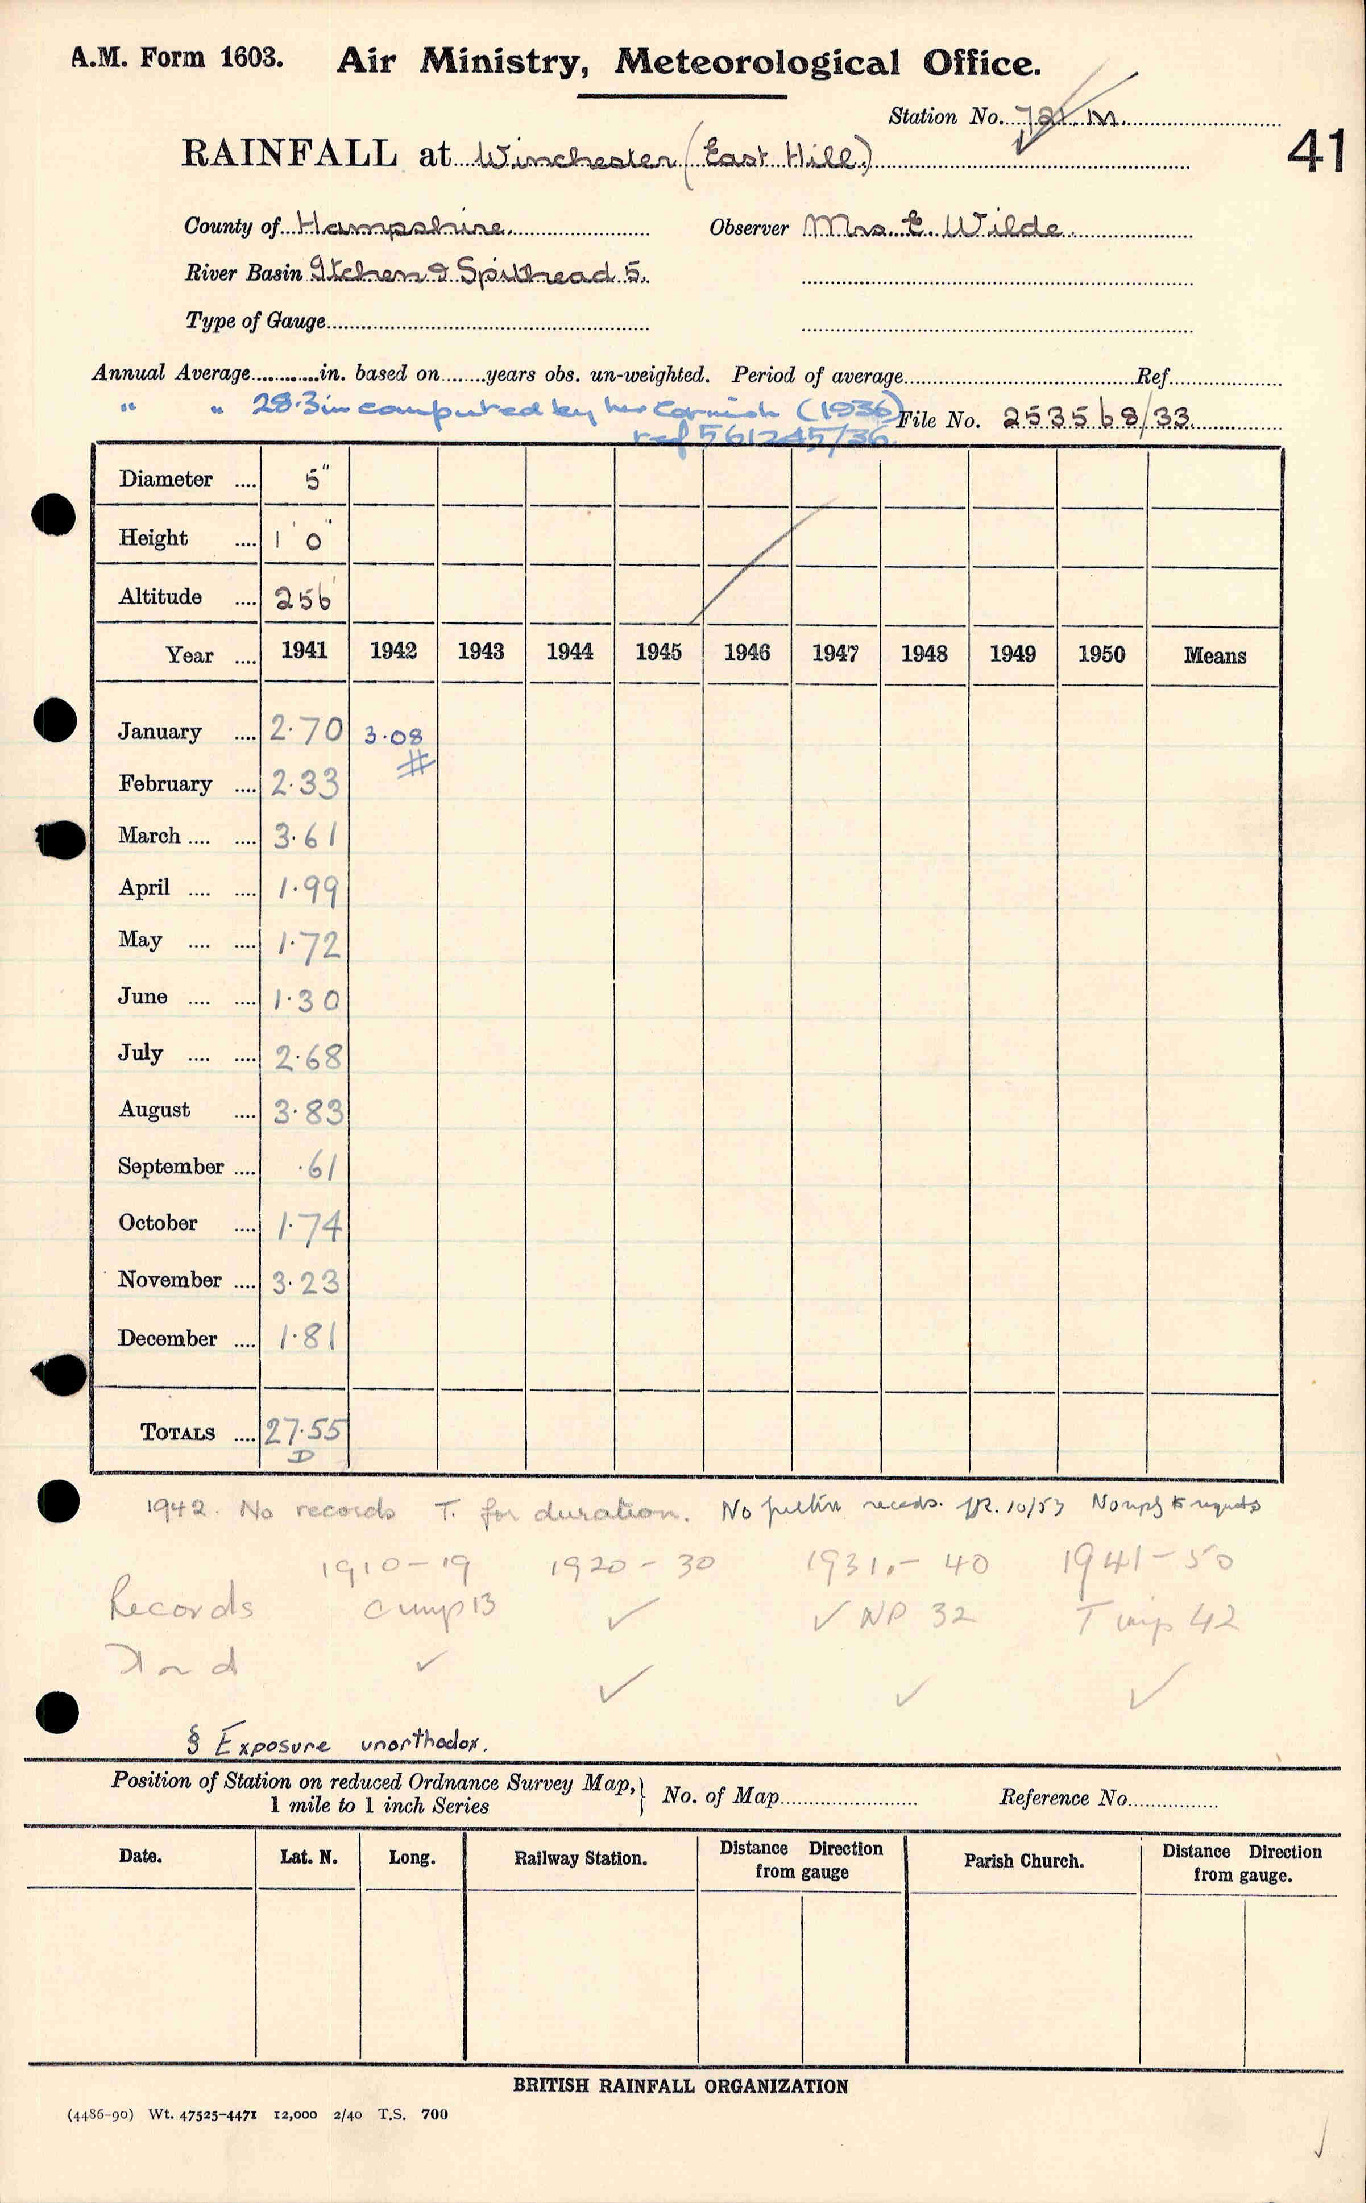 A.M. Form 1603. Air Ministry, Meteorological Office.
Station No. 721.M.
RAINFALL at Winchester (East Hill)
41
County of Hampshire. Observer Mrs. E. Wilde.
River Basin Itchen & Spithead 5.
Type of Gauge
Annual Average............in. based on........years obs. un-weighted. Period of average Ref.
" " 28.3in computed by (1936) File No. 253568/33.
ref 561245/36
Diameter .... 5"
Height .... 1' 0"
Altitude .... 256'
Year .... 1941 1942 1943 1944 1945 1946 1947 1948 1949 1950 Means
January .... 2.70 3.08
#
February .... 2.33
March .... .... 3.61
April .... .... 1.99
May .... .... 1.72
June .... .... 1.30
July .... .... 2.68
August .... 3.83
September .... .61
October .... 1.74
November .... 3.23
December .... 1.81
TOTALS .... 27.55
D
1942. No records T. for duration. No records. 10/53 No to requests
1910-19 1920-30 1931-40 1941-50
Records 13 ✓ ✓ NP 32 T 42
✓ ✓ ✓ ✓
§ Exposure unorthodox.
Position of Station on reduced Ordnance Survey Map, } No. of Map Reference No.
1 mile to 1 inch Series
Date. Lat. N. Long. Railway Station. Distance Direction from gauge Parish Church. Distance Direction from gauge.
BRITISH RAINFALL ORGANIZATION
(4486-90) Wt. 47525-4471 12,000 2/40 T.S. 700